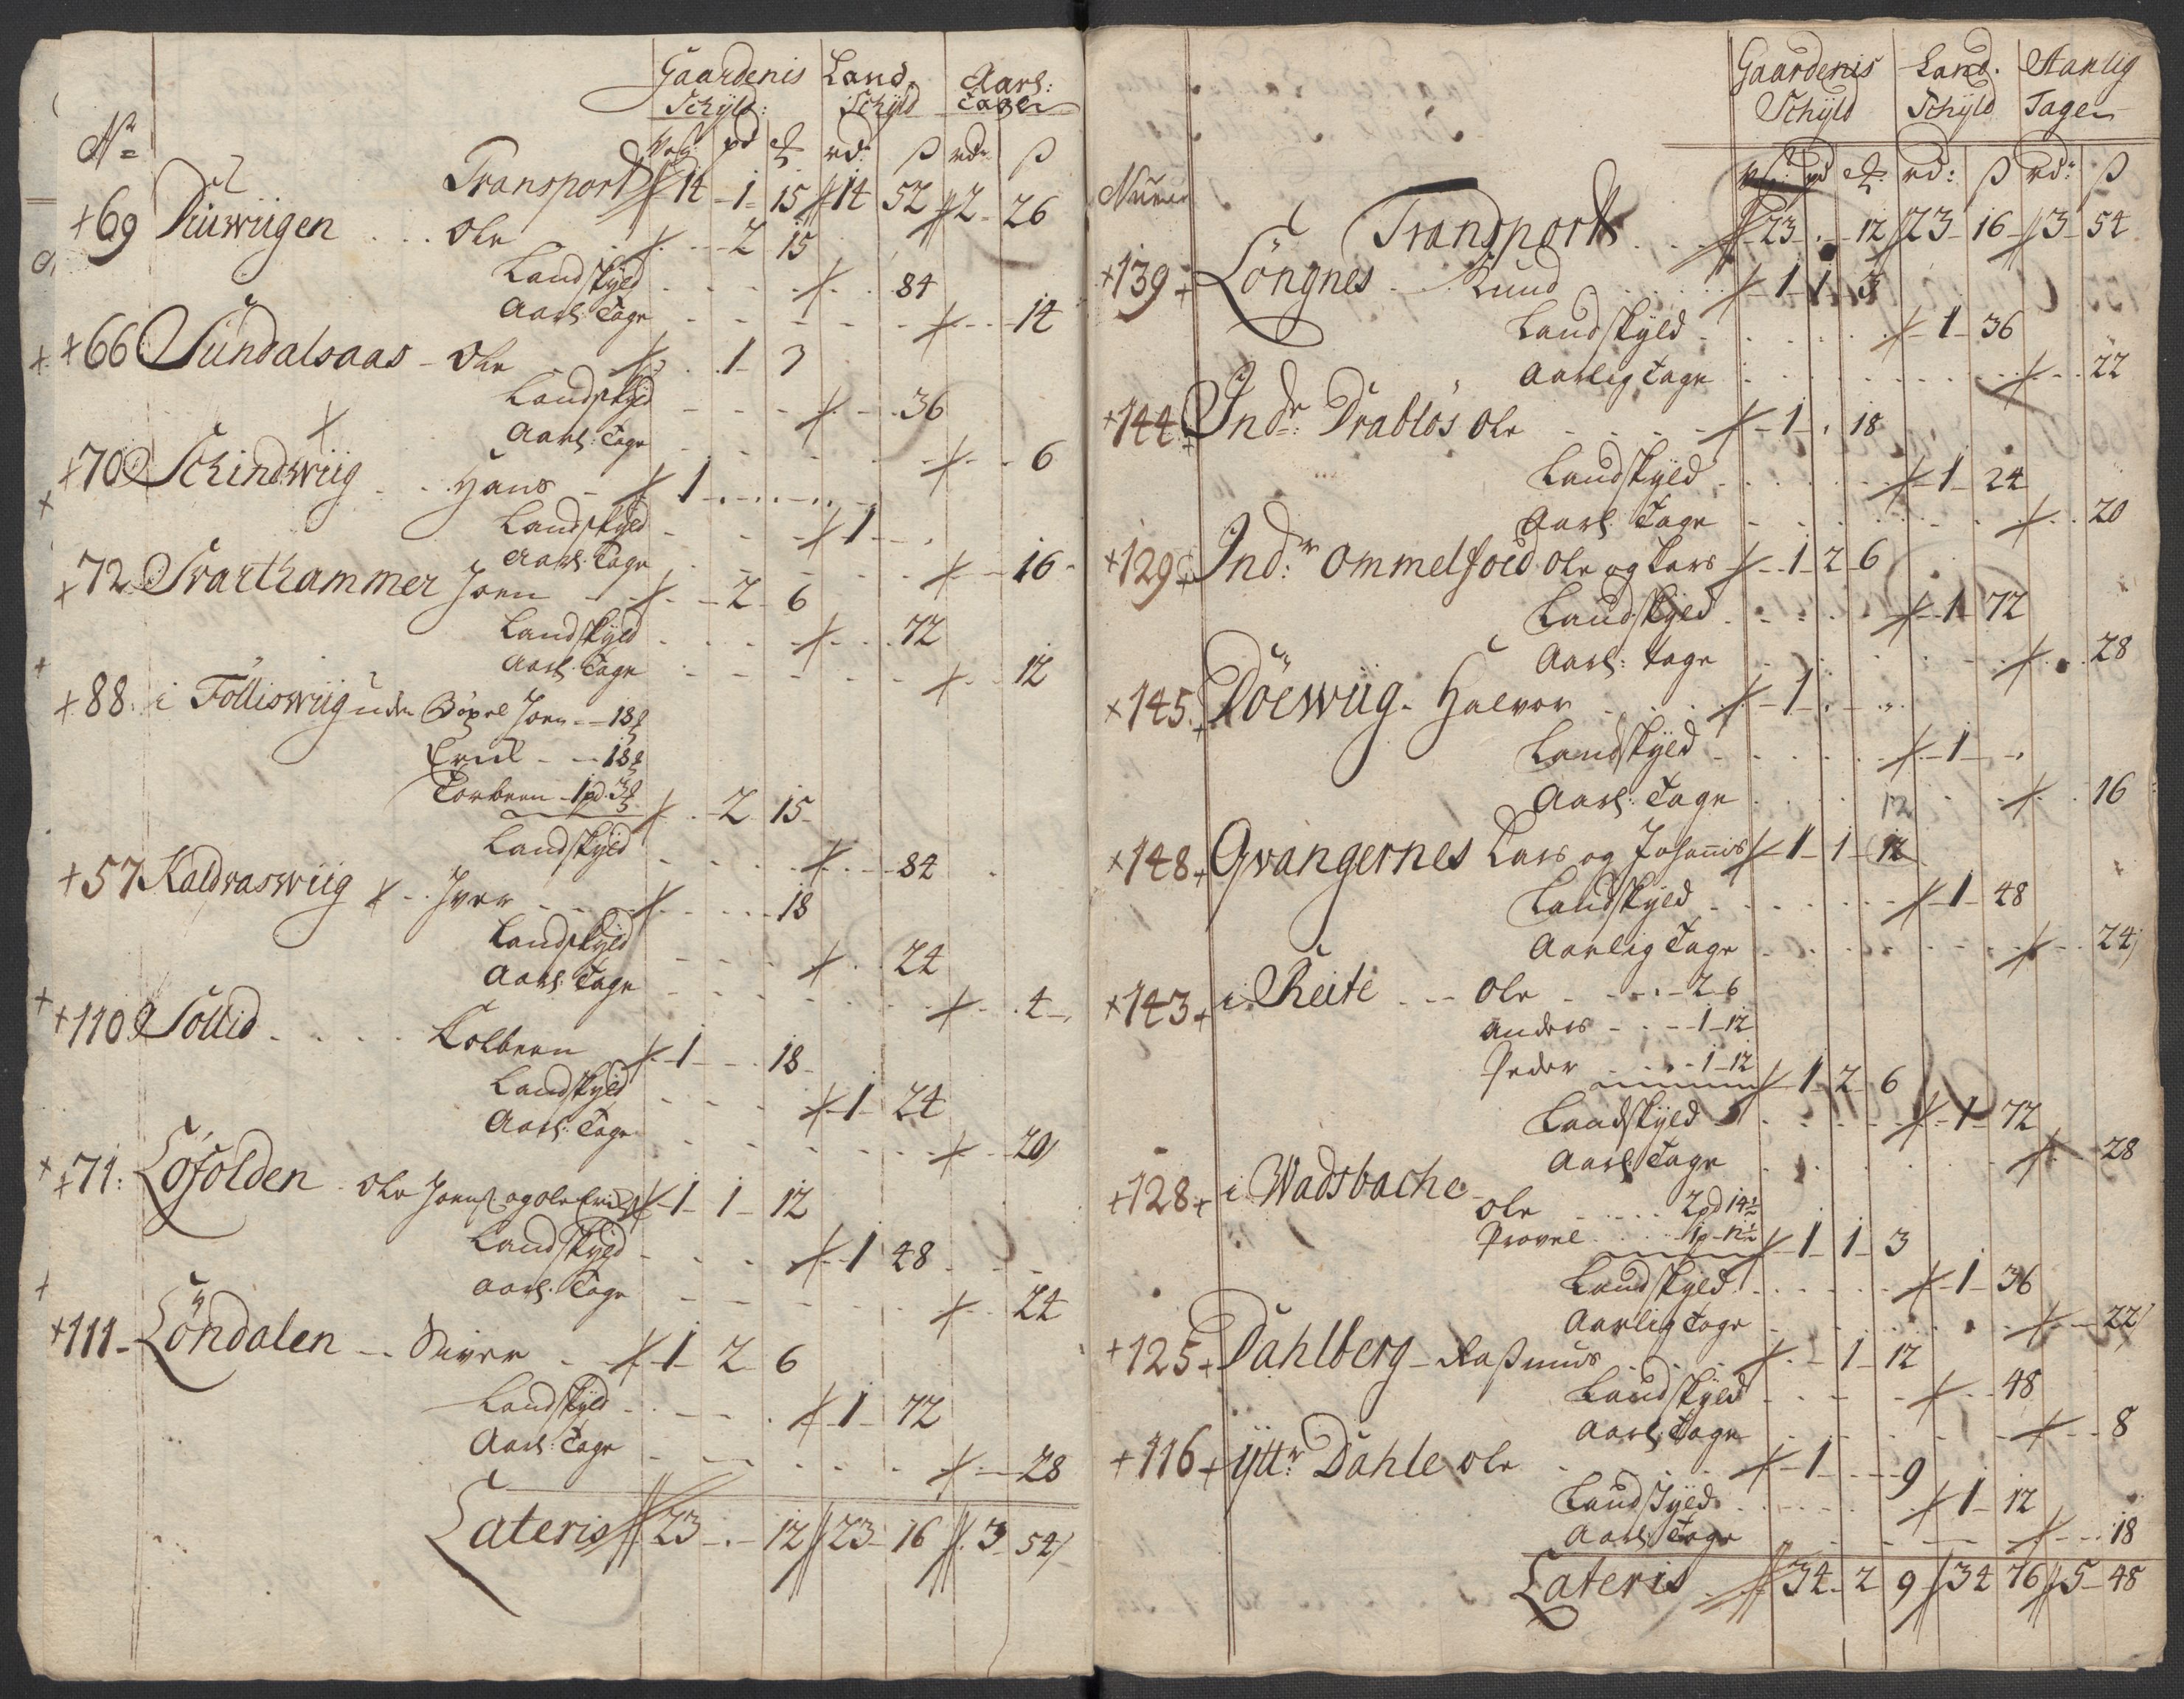 Gaardenis Land Aarl:
Schyld: Schyld Tage
No Wog: pd ℔ rd: β rdr β
Transport 14 1 15 14 52 2 26
69 Riuwiigen Ole 2 15
Landskyld 84
Aarl: Tage 14
66 Sundalsaas Ole 1 3
Landskyld 36
Aarl: Tage 6
70 Schindwiig Hans 1
Landskyld 1
Aarl: Tage 16
72 Svarthammer Joen 2 6
Landskyld 72
Aarl: Tage 12
88 i Tolliswiig Joen 18
Erich 18
Torbern 1 pd 3
2 15
Landskyld 84
57 Kaldvaswiig Iver 18
Landskyld 24
Aarl: Tage 4
110 Sollid Kolbern 1 18
Landskyld 1 24
Aarl: Tage 20
71: Löfolden Ole Joens: og Ole Erichs 1 1 12
Landskyld 1 48
Aarl: Tage 24
111 Löndalen Siver 1 2 6
Landskyld 1 72
Aarl: Tage 28
Lateris 23 12 23 16 3 54
Gaardenis Land. Aarlig
Schyld Schyld Tage
Numer Wog: pd ℔: rd: β rd: β
Transport 23 12 23 16 3 54
139 Löngnes Knud 1 1 3
Landskyld 1 36
Aarlig Tage 22
144 Indr: Drablös Ole 1 18
Landskyld 1 24
Aarl: Tage 20
129 Ind:r Ommelfoed Ole og Lars 1 2 6
Landskyld 1 72
Aarl: Tage 28
145 Döewiig Halvor 1
Landskyld 1
Aarl: Tage 16
12
148 Qvangernes Lars og Johannis 1 1 12
Landskyld 1 48
Aarlig Tage 24
143 i Reite Ole 2 6
Anders 1 12
Peder 1 12
1 2 6
Landskyld 1 72
Aarl: Tage 28
128 i Wadsbache
Ole 2 pd 14½
Povel 1 p 12½
1 1 3
Landskyld 1 36
Aarlig Tage 22
125 Dahlberg Rasmus 1 12
Landskyld 48
Aarl: Tage 8
116 ytt:r Dahle Ole 1 9
Landskyld 1 12
Aarl: Tage 18
Lateris 34 2 9 34 76 5 48